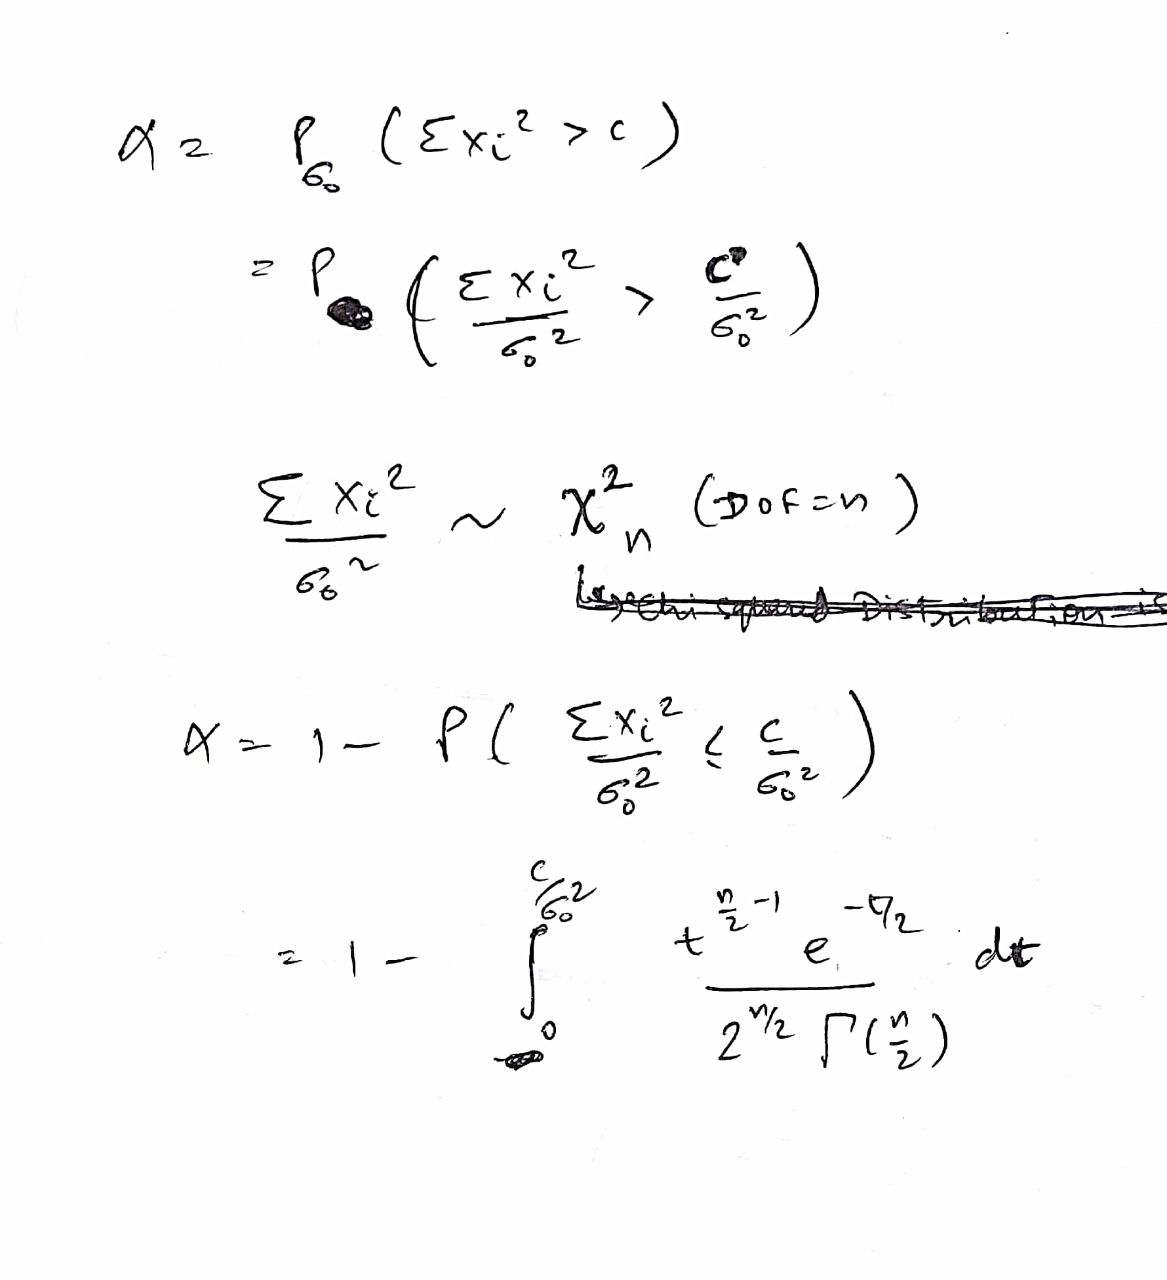 α = P_σ₀ (Σxᵢ² > c)
= P (Σxᵢ²/σ₀² > c/σ₀²)
Σxᵢ²/σ₀² ~ χ²ₙ (DOF=n)
↳ chi squared Distribution is
α = 1 - P(Σxᵢ²/σ₀² ≤ c/σ₀²)
= 1 - ∫₀^(c/σ₀²) t^(n/2 -1) e^(-t/2) / 2^(n/2) Γ(n/2) dt